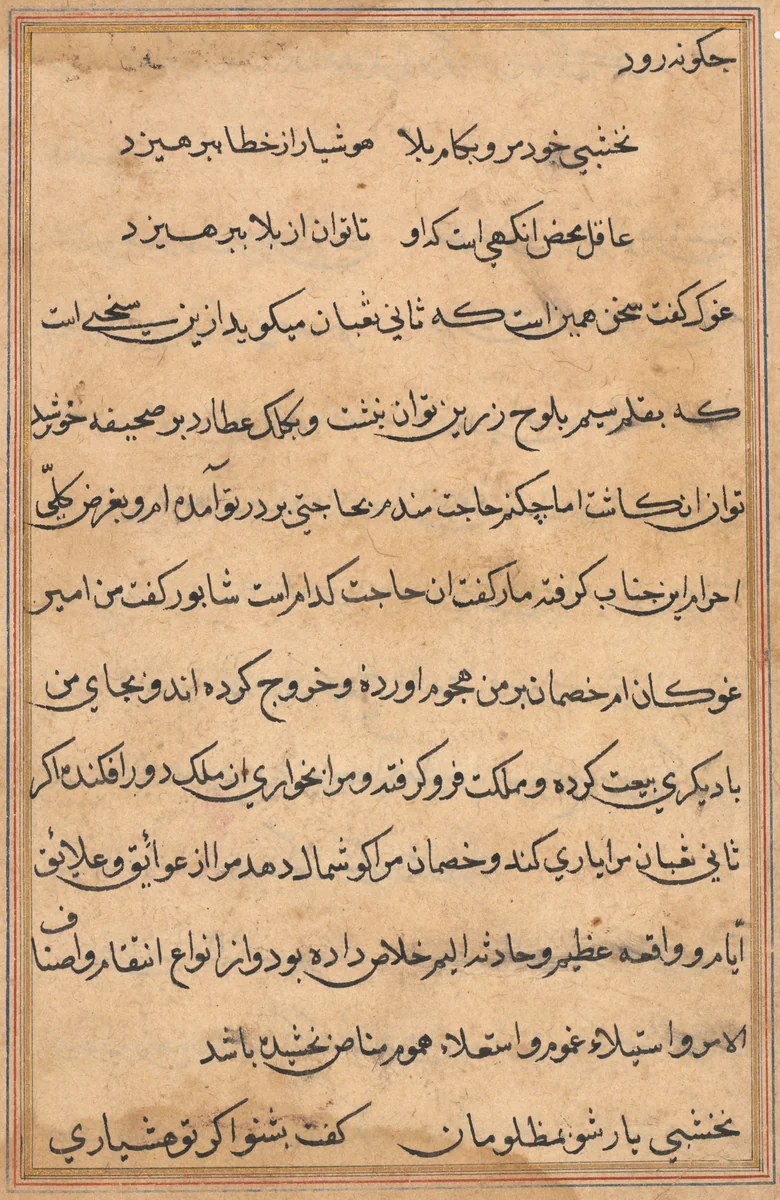 چکونه رود
نخشبي خود مرو بکام بلا هوشیار از خطا بپرهیزد
عاقل محض انکهي است که او تا توان از بلا بپرهیزد
غوک کفت سخن همین است که ثاني ثعبان میکوید ازین سخنے است
که بقلم سیم بلوح زرین توان نبشت و بکلک عطارد بر صحیفه خورشید
توان انکاشت اما چکنم حاجت مندم بحاجتي بر در تو آمده ام و بغرض کلّي
احرام این جناب کرفته مار کفت ان حاجت کدام است شابور کفت من امیر
غوکان ام خصمان بر من هجوم اورده و خروج کرده اند و بجاي من
با دیکري بیعت کرده و مملکت فرو کرفته و مرا بخواري از ملک دور افکنده اکر
ثاني ثعبان مرا یاري کند و خصمان مرا کوشمال دهد مرا از عوائق و علائق
ایّام و واقعه عظیم و حادثه الیم خلاص داده بود و از انواع انتقام و اصناف
الام و استیلاء غموم و استعلاء هموم مناص بخشیده باشد
نخشبي یار شو بمظلومان کفت بشنو اکر تو هشیاري